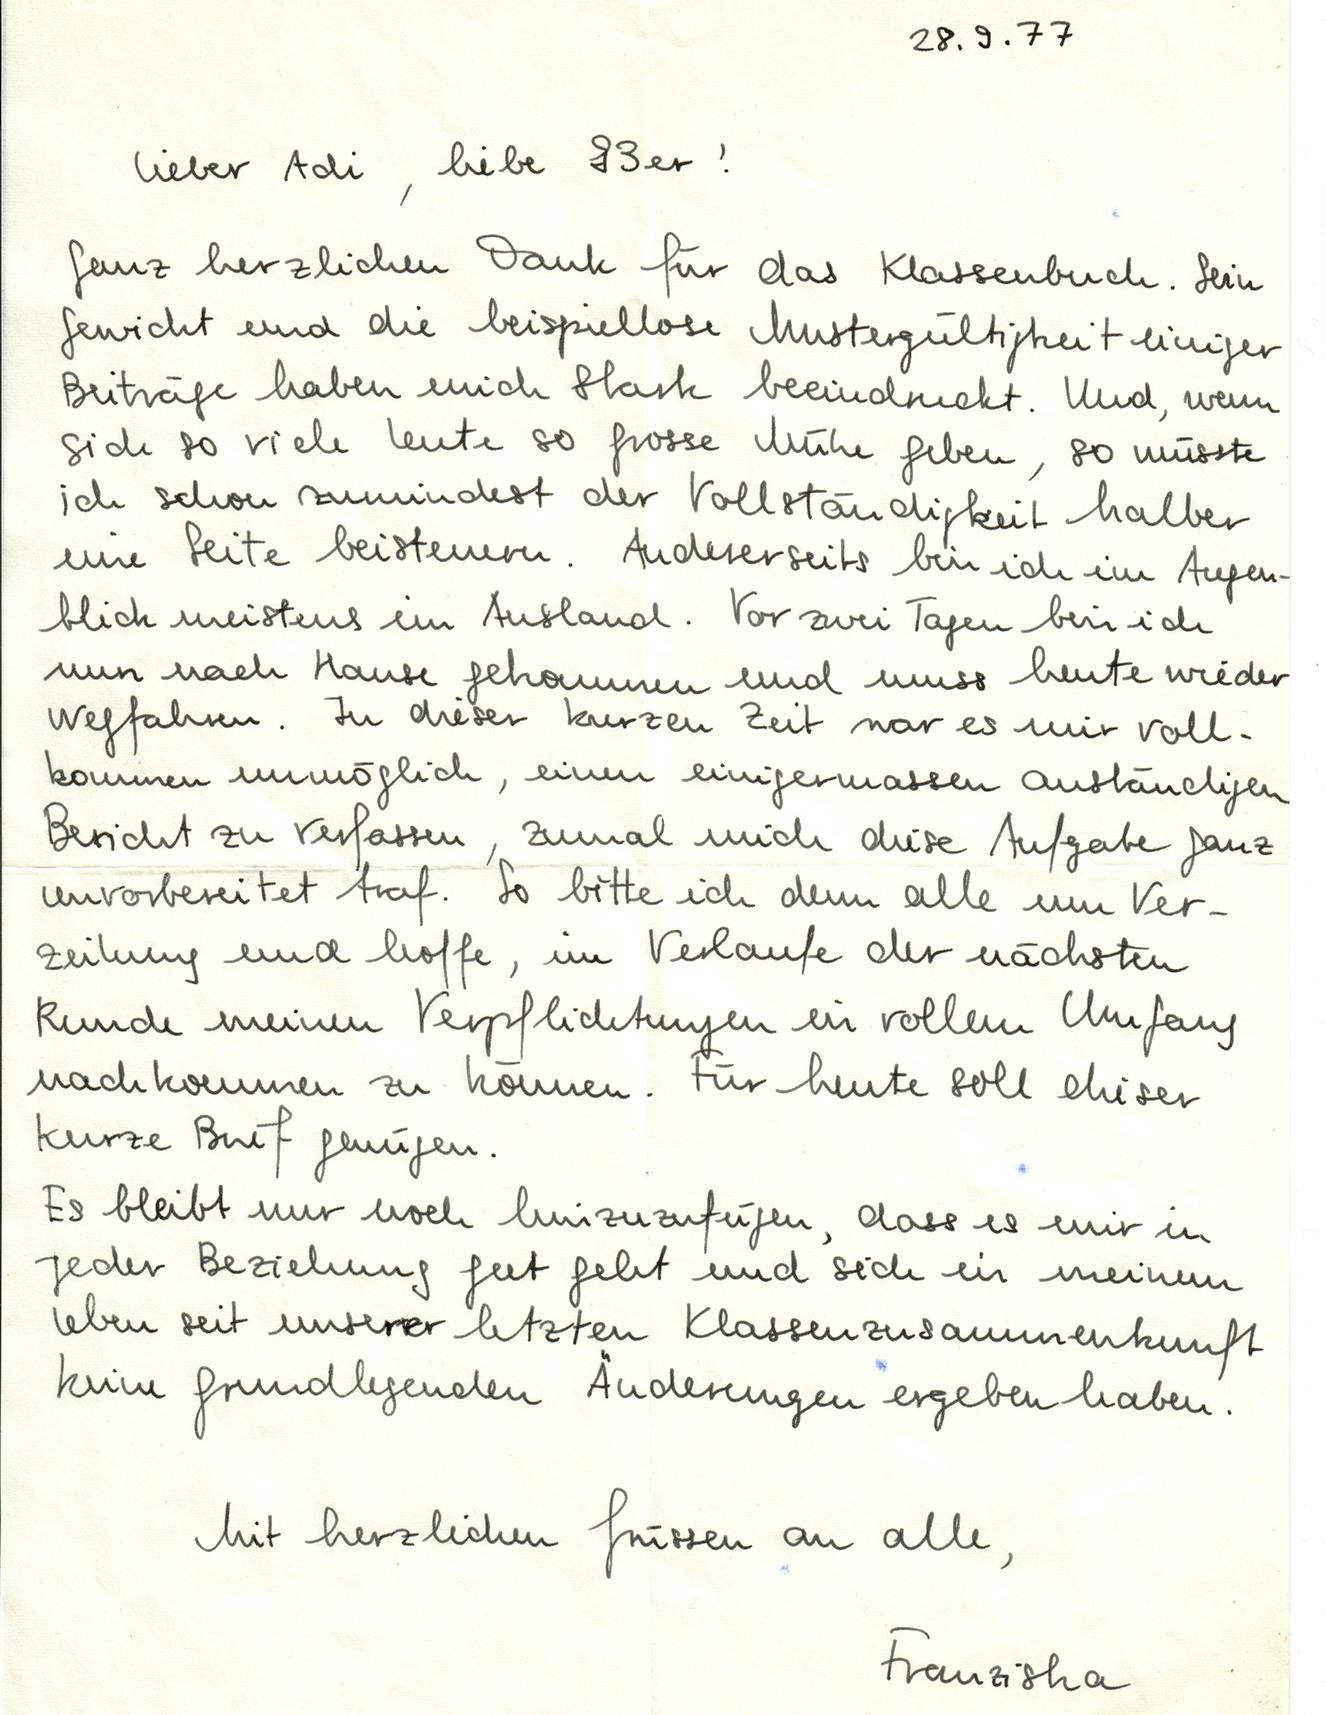 28.9.77
Lieber Adi, liebe 83er!
Ganz herzlichen Dank für das Klassenbuch. Sein
Gewicht und die beispiellose Mustergültigkeit einiger
Beiträge haben mich stark beeindruckt. Und, wenn
sich so viele Leute so grosse Mühe geben, so müsste
ich schon zumindest der Vollständigkeit halber
eine Seite beisteuern. Andererseits bin ich im Augen-
blick meistens im Ausland. Vor zwei Tagen bin ich
nun nach Hause gekommen und muss heute wieder
wegfahren. In dieser kurzen Zeit war es mir voll-
kommen unmöglich, einen einigermassen anständigen
Bericht zu verfassen, zumal mich diese Aufgabe ganz
unvorbereitet traf. So bitte ich denn alle um Ver-
zeihung und hoffe, im Verlaufe der nächsten
Runde meinen Verpflichtungen in vollem Umfang
nachkommen zu können. Für heute soll dieser
kurze Brief genügen.
Es bleibt nur noch hinzuzufügen, dass es mir in
jeder Beziehung gut geht und sich in meinem
Leben seit unserer letzten Klassenzusammenkunft
keine grundlegenden Änderungen ergeben haben.
Mit herzlichen Grüssen an alle,
Franziska